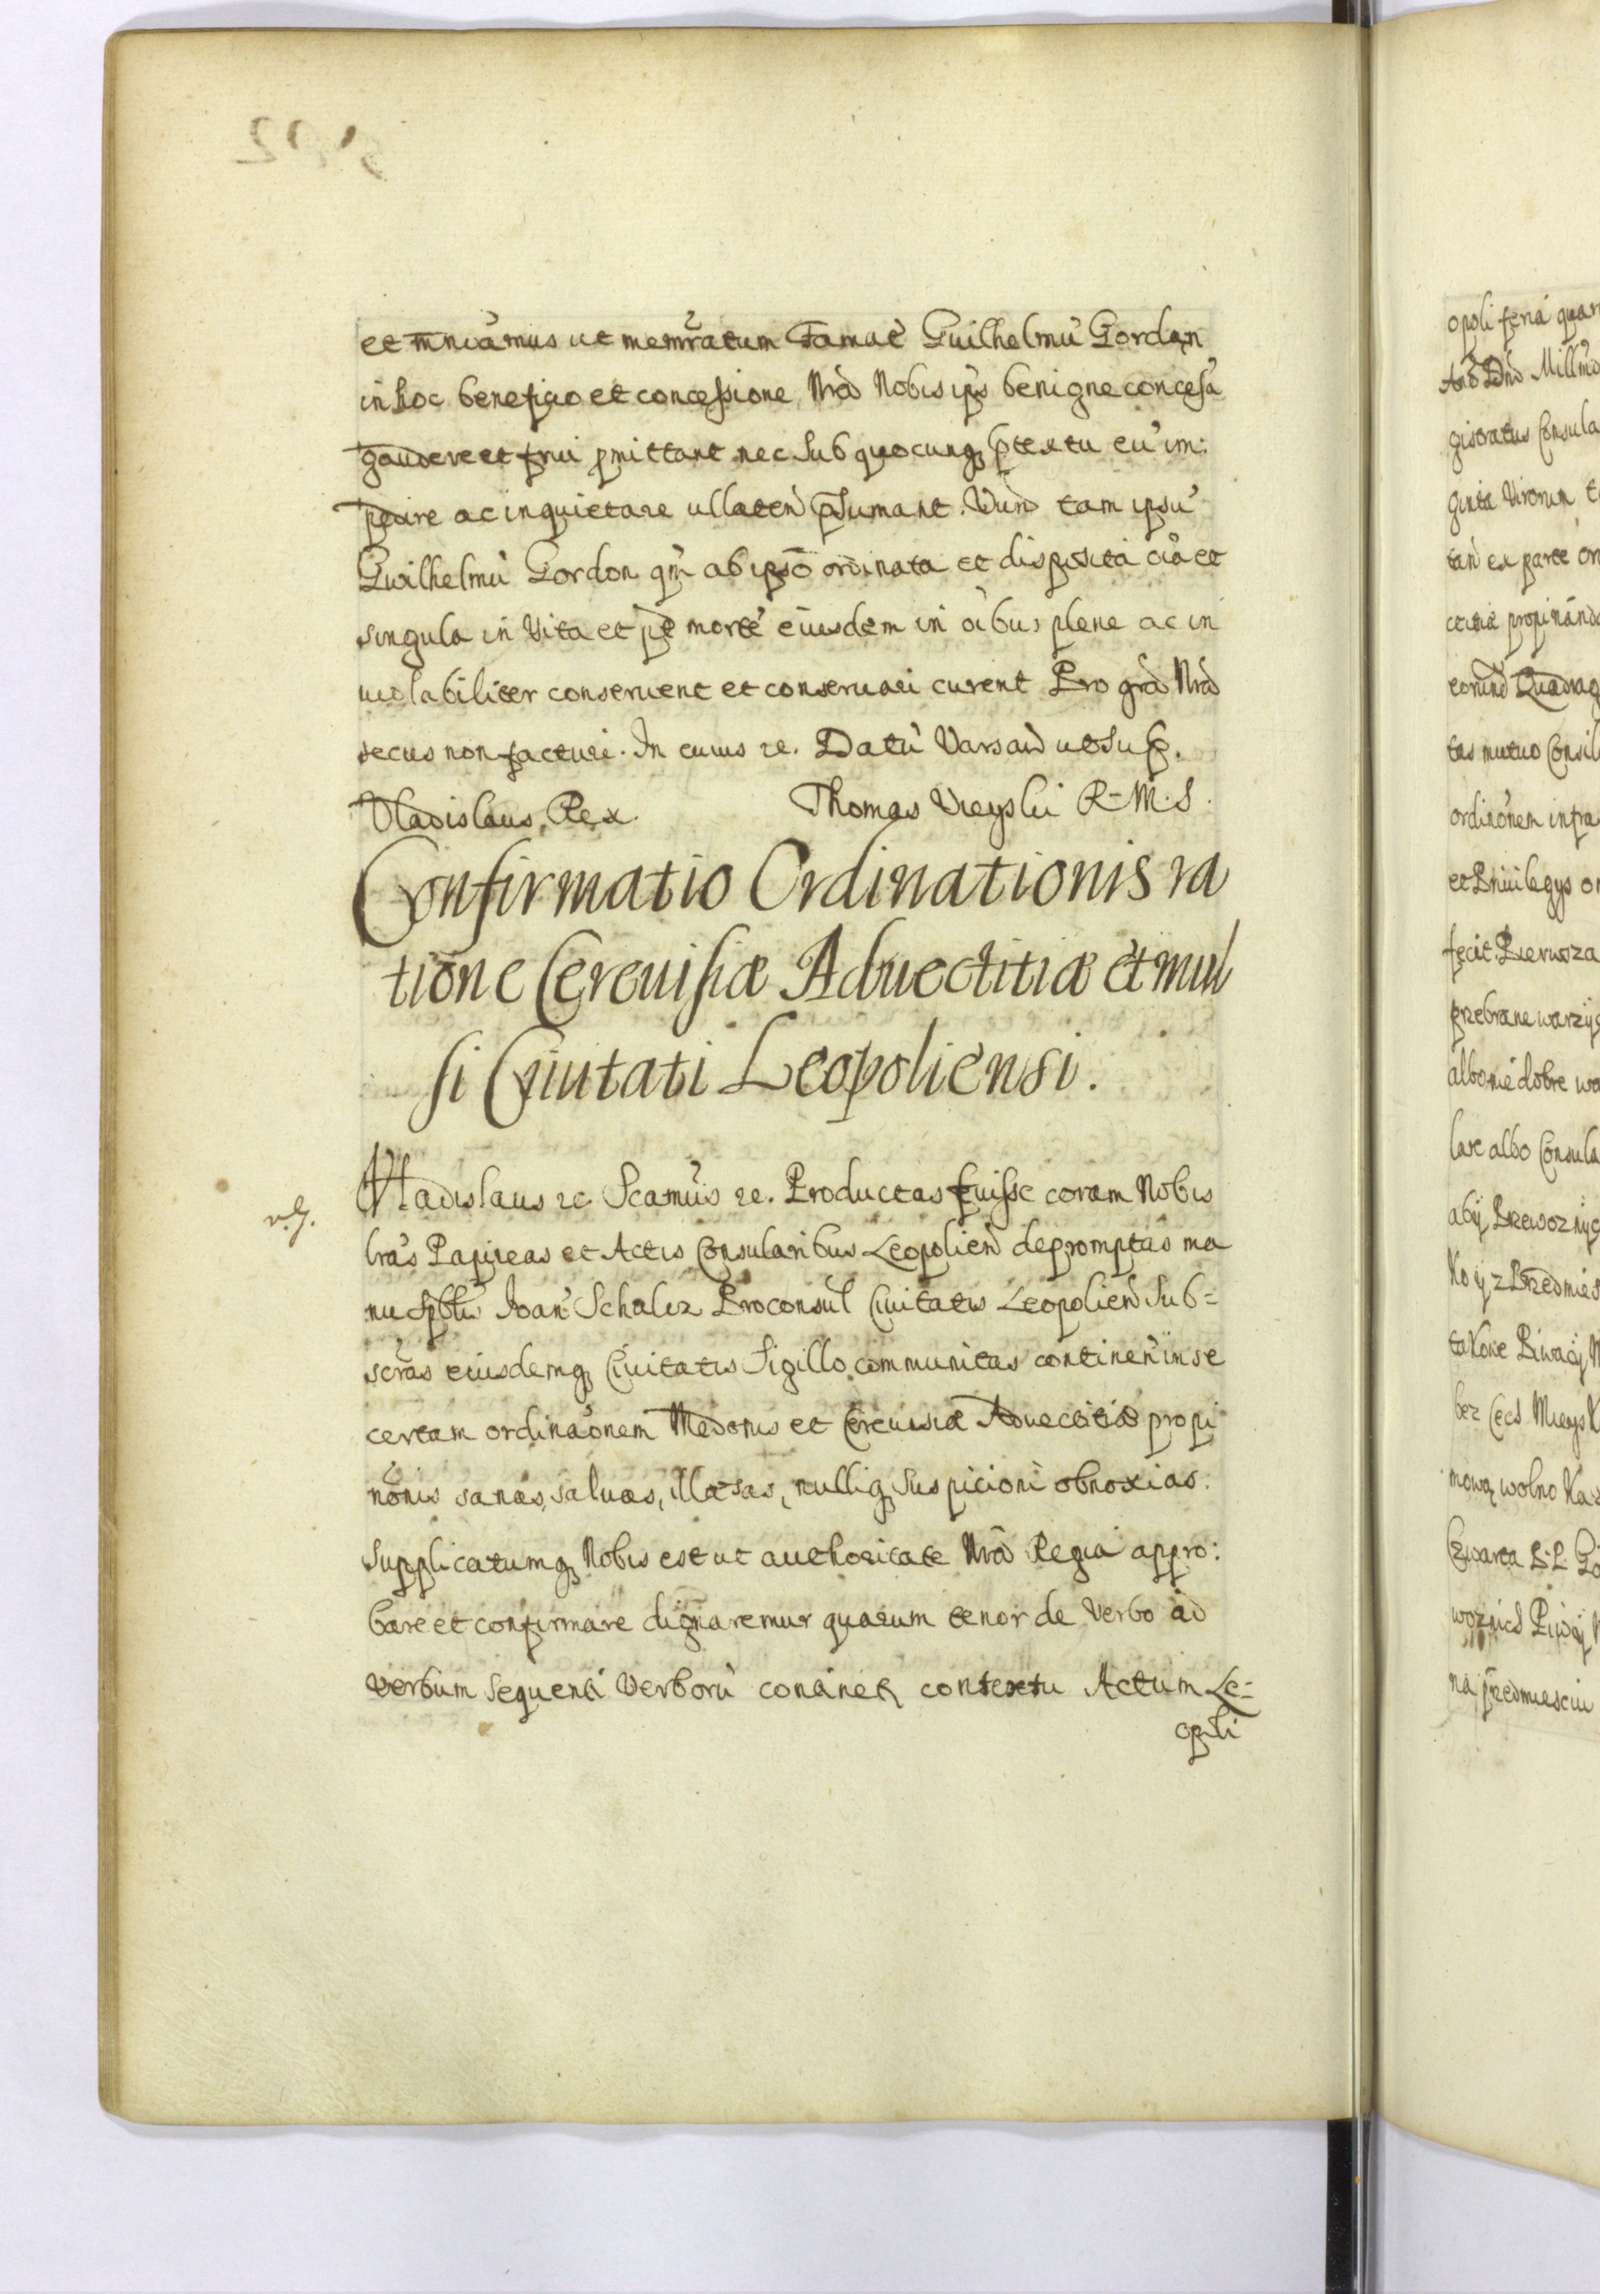 et mndamus ut memratum Famat Guilhelmu Gordon
in hoc beneficio et concessione Nra Nobis ips benigne concessa
gaudere et frui pmittant nec sub quocunq ptextu eu im:
pedire ac inquietare ullaten psumant. Verum tam ipsu
Guilhelmu Gordon qm ab ipso ordinata et disposita oia et
singula in Vita et pt morte eiusdem in oibus plene ac in
uiolabiliter conseruent et conseruari curent Pro gra Nra
secus non facturi. In cuius re. Datu Varsaw ut Sup.
Vladislaus Rex. Thomas Uieyski R-M.S.
Confirmatio Ordinationis ra
tione Cereuisiæ Aduectitiæ et mul
si Ciuitati Leopoliensi.
Vladislaus re Scamus re. Productas fuisse coram Nobis
lras Papireas et Actis Consularibus Leopolien depromptas ma
nu Spblis Joan Scholcz Proconsul Ciuitatis Leopolien Sub=
scras eiusdemq Ciuitatis Sigillo communitas continen in se
certam ordinaonem Medonis et Cereuisiæ Aduectitiæ propi
nonis sanas, saluas, illæsas, nulliq suspicioni obnoxias.
Supplicatumq Nobis est ut authoritate Nra Regia appro:
bare et confirmare dignaremur quarum tenor de Verbo ad
verbum sequenti Verboru continet contextu Actum Le=
opoli
opoli feria quar
Ano Dni Millmo
gistratus Consula
ginta Virorum
tan ex parte
propinando
eorund Quadrag
tas mutuo Consil
ordinonem infra
et Priuilegys
fecit. Pierwsza
przebrane warzyc
albo nie dobre
lare albo Consula
aby Przewoznyc
Ko y z Przedmies
takowe Piwacy
bez Cechu Mieysk
mową wolno
Czwarta
na przedmiesciu